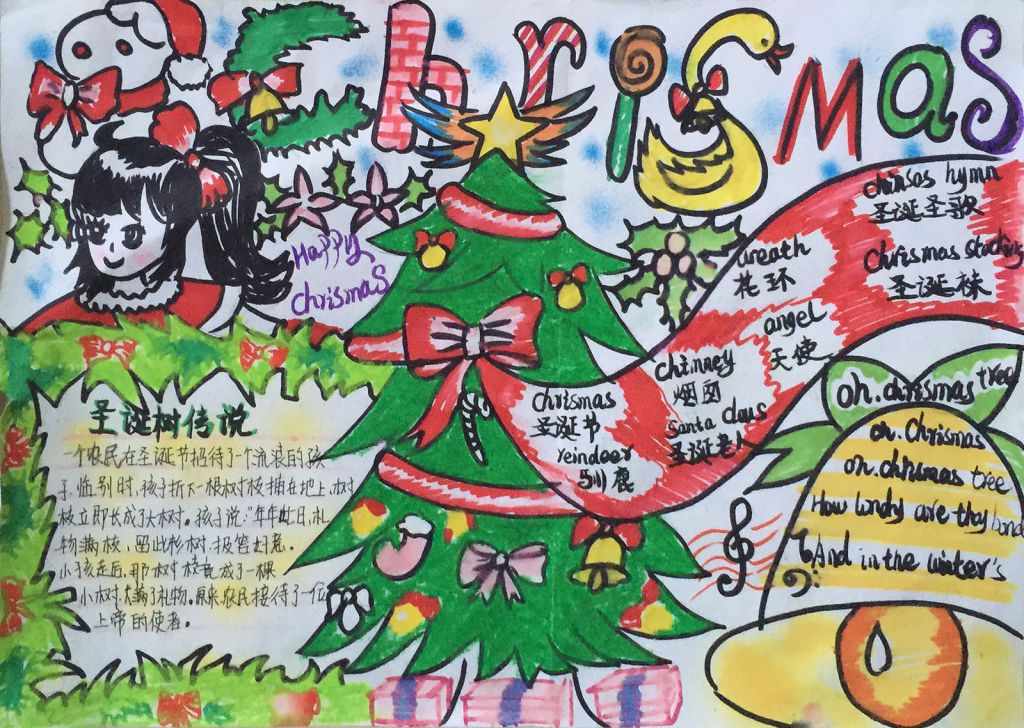 Chrismas
Happy
chrismas
chrismas hymn
圣诞圣歌
wreath
花环
chrismas stocking
圣诞袜
angel
天使
chimney
烟囱
santa claus
圣诞老人
chrismas
圣诞节
reindeer
驯鹿
圣诞树传说
一个农民在圣诞节招待了个流浪的孩
子,临别时,孩子折下一根树枝插在地上,树
枝立即长成了大树。孩子说:"年年此日,礼
物满枝,留此杉树,报答好意。
小孩走后,那树枝竟成了一棵
小树,大满了礼物。原来,农民接待了一位
上帝的使者。
oh.chrismas tree
oh.Chrismas
oh.chrismas tree
How are they
And in the winter's